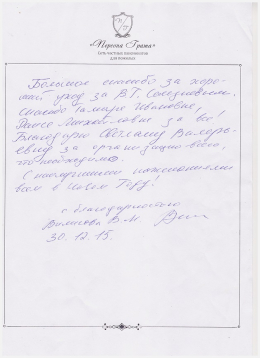 «Первая Грата»
Сеть частных пансионатов
для пожилых
Большое спасибо за хоро-
ший уход за В.Т.
спасибо Тамаре Ивановне,
Раисе Михайловне за всё!
Благодарю Светлану Валерь-
евну за организацию всего,
необходимого.
С наилучшими пожеланиями
всем в Новом Году!
с благодарностью
В.И.
30.12.15.